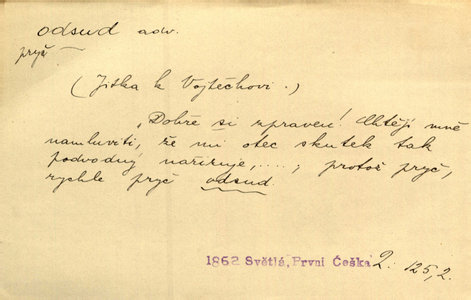 odsud adv.
pryč —
(Jitka k Vojtěchovi.)
„Dobře si zpraveni! Chtějí mně
namluviti, že mi otec skutek tak
podvodný nařizuje, ....; protož pryč,
rychle pryč odsud.
1862 Světlá, První Češka 2. 125,2.